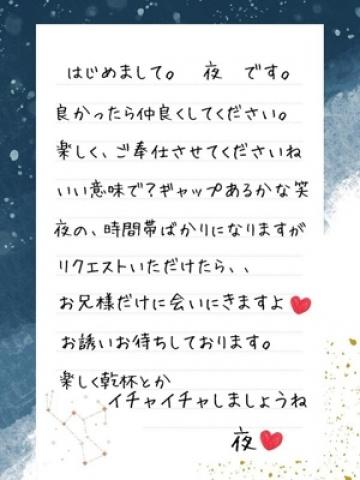 はじめまして。 夜 です。
良かったら仲良くしてください。
楽しく、ご奉仕させてくださいね
いい意味で?ギャップあるかな笑
夜の、時間帯ばかりになりますが
リクエストいただけたら、、
お兄様だけに会いにきますよ❤
お誘いお待ちしております。
楽しく乾杯とか
イチャイチャしましょうね
夜❤